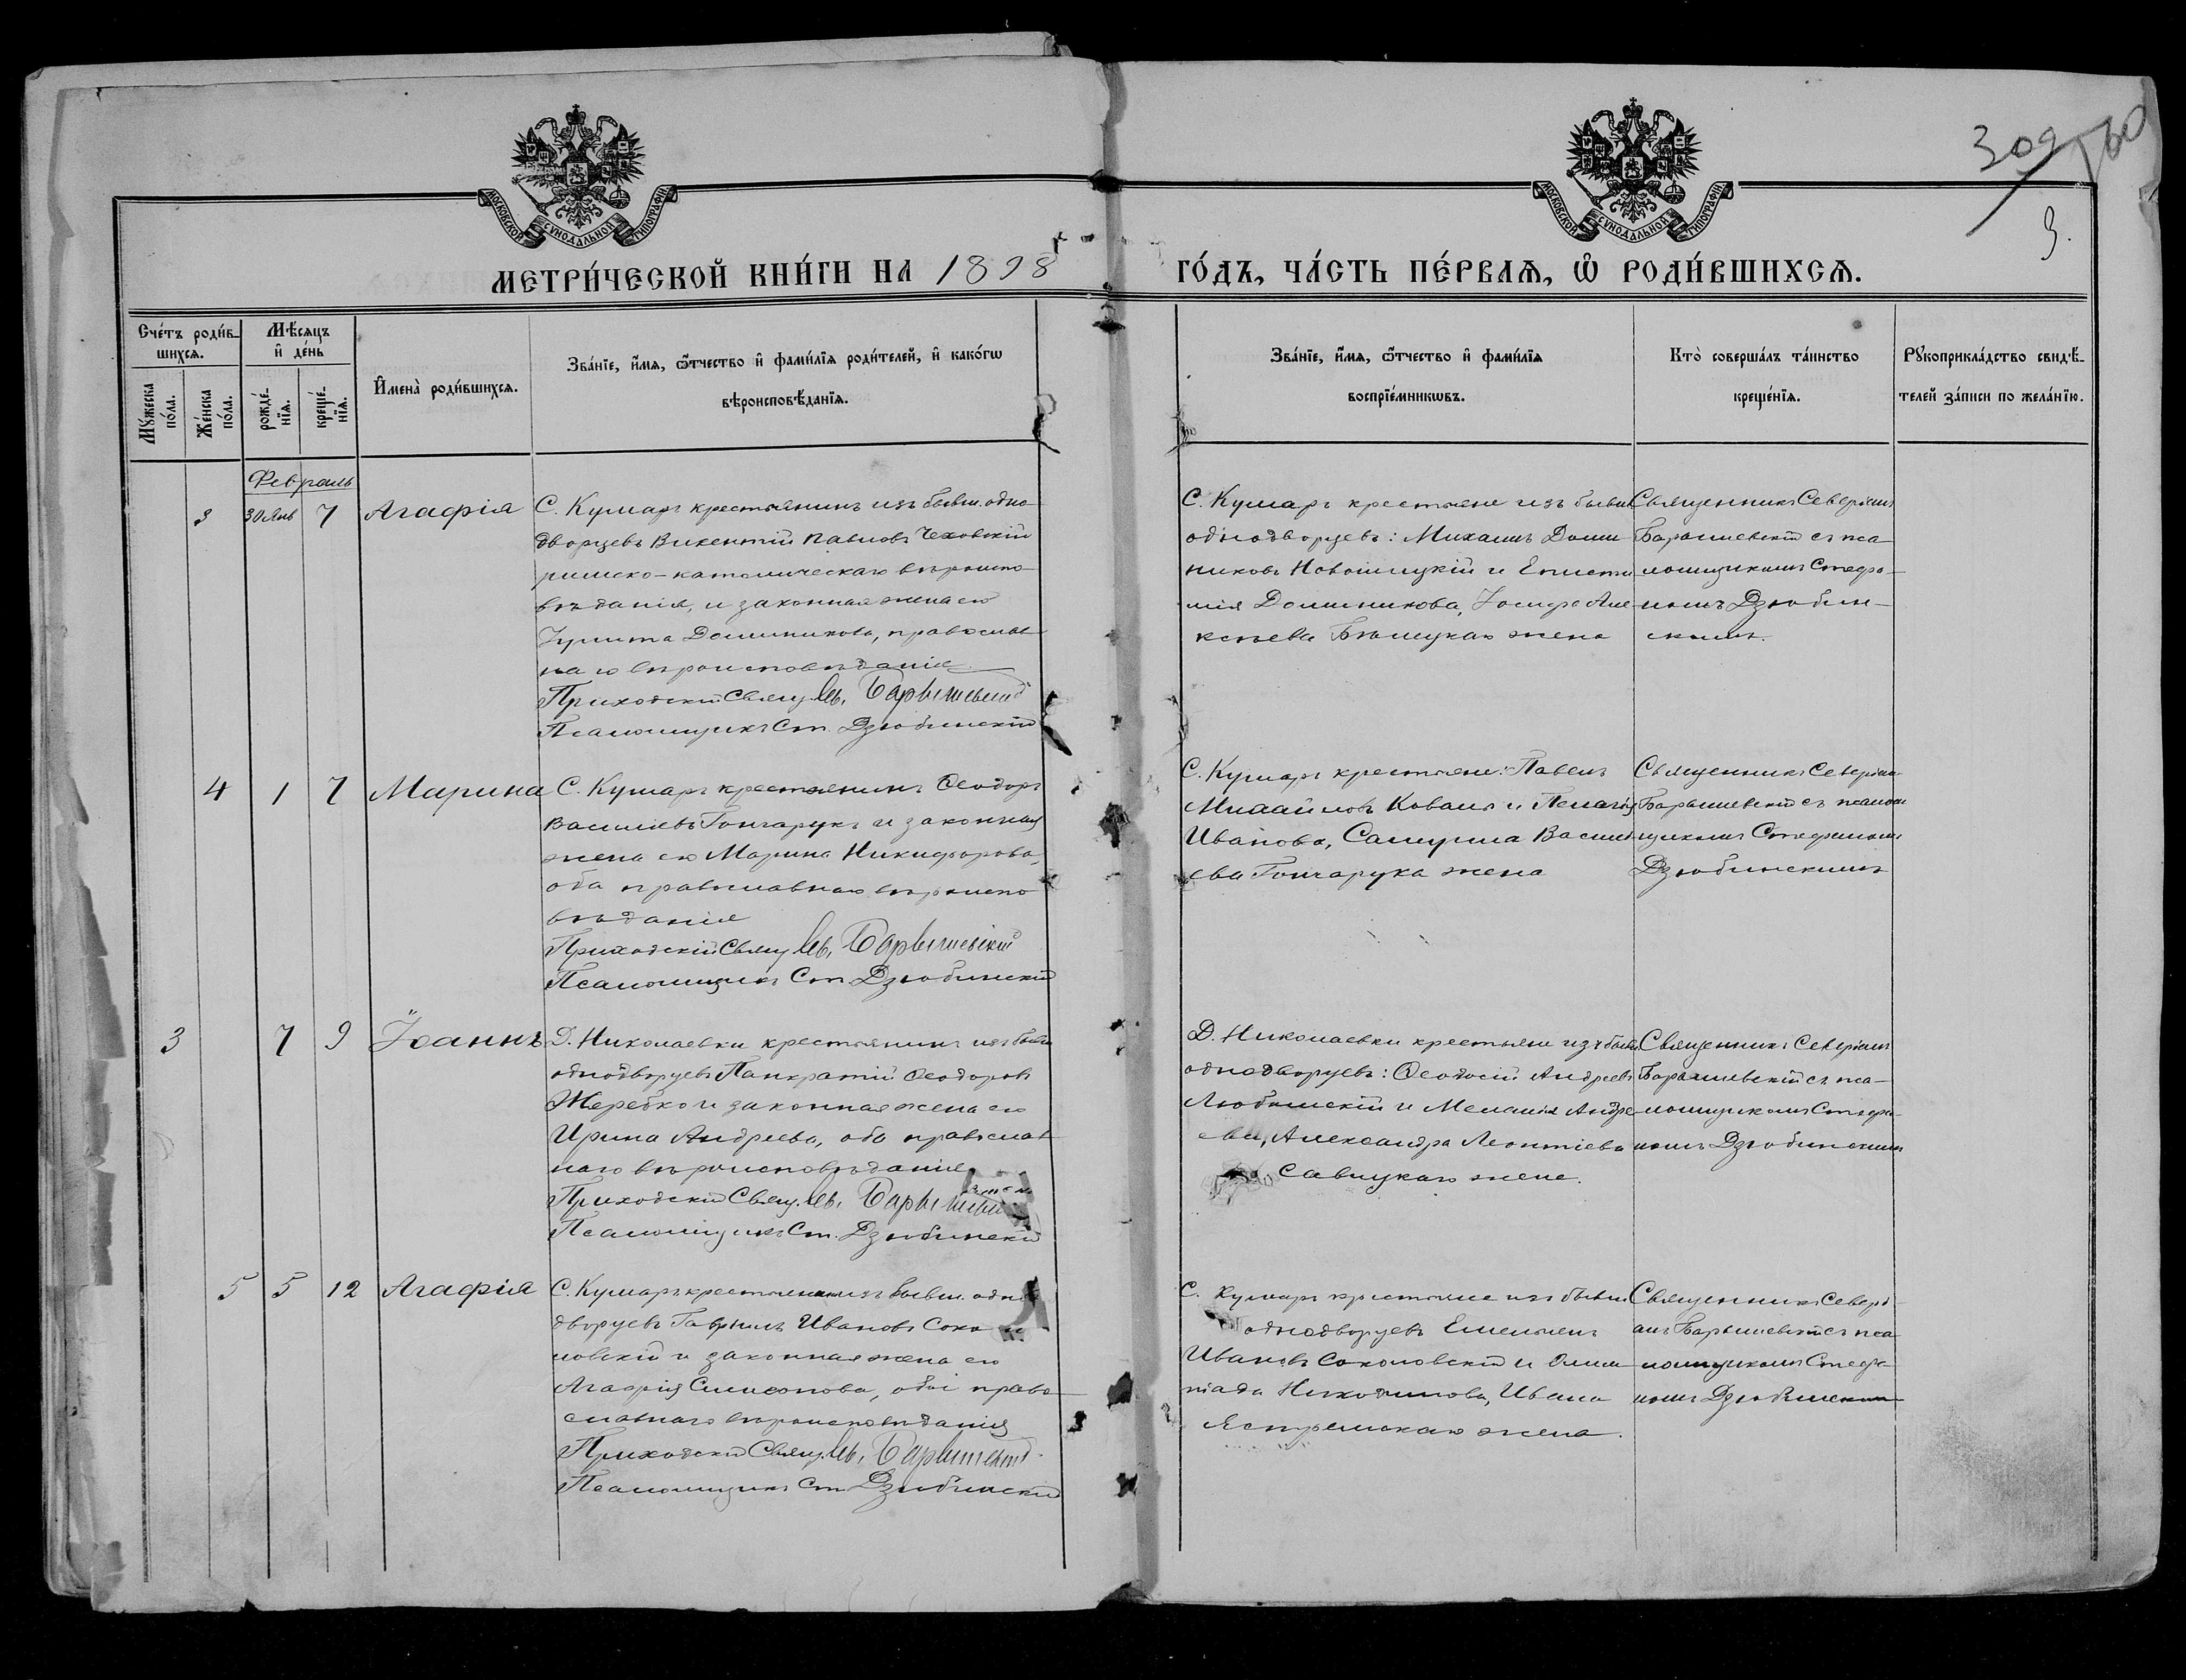 309
60
9.
МОСКОВСКОЙ СѴНОДАЛЬНОЙ ТИПОГРАФІИ
МОСКОВСКОЙ СѴНОДАЛЬНОЙ ТИПОГРАФІИ
МЕТРИ́ЧЕСКОЙ КНИ́ГИ НА 1898
ГО́ДЪ, ЧА́СТЬ ПЕ́РВАѦ, Ѡ҆ РОДИ́ВШИХСѦ.
Сче́тъ роди́в-
шихсѧ.
Мꙋ́жеска
по́ла.
Же́нска
по́ла.
Мѣ́сѧцъ
и҆ де́нь
рожде́-
нїѧ.
креще́-
нїѧ.
И҆мена̀ роди́вшихсѧ.
Зва́нїе, и҆́мѧ, ѻ҆́тчество и҆ фами́лїѧ роди́телей, и҆ како́гѡ
вѣроисповѣ́данїѧ.
Зва́нїе, и҆́мѧ, ѻ҆́тчество и҆ фами́лїѧ
воспрїе́мникѡвъ.
Кто̀ соверша́лъ та́инство
креще́нїѧ.
Рꙋкоприкла́дство свидѣ́-
телей за́писи по жела́нїю.
Февраль
3 30 Янв 7 Агафія
С. Кумаръ крестьянинъ изъ бывш. одно-
дворцевъ Викентій Павловъ Чеховскій
римско-католическаго вѣроиспо-
вѣданія, и законная жена его
Доминикова, православ-
наго вѣроисповѣданія.
Приходскій Свящ. Св. Барышевскій
Псаломщикъ Ст. Дзюбинскій
С. Кумаръ крестьяне изъ бывш
однодворцевъ: Михаилъ Доми
никовъ Новошицкій и Еписти
мія Доминикова, Іосифа Але
ксѣева Бѣлицкаго жена
Священникъ Северіанъ
Барышевскій съ пса
ломщикомъ Стефа-
номъ Дзюбин-
скимъ.
4 1 7 Марина
С. Кумаръ крестьянинъ Ѳеодоръ
Васильевъ Гончарукъ и законная
жена его Марина Никифорова,
оба православнаго вѣроиспо
вѣданія
Приходскій Свящ Св. Барышевскій
Псаломщикъ Ст Дзюбинскій
С. Кумаръ крестьяне: Павелъ
Михайловъ Коваль и Пелагія
Иванова, Самуила Василь-
ева Гончарука жена
Священникъ Северіанъ
Барышевскій съ псалом
щикомъ Стефаномъ
Дзюбинскимъ
3 7 9 Іоаннъ
Д. Николаевки крестьянинъ изъ бывш
однодворцевъ Панкратій Ѳеодоровъ
Жеребко и законная жена его
Ирина Андреева, оба православ
наго вѣроисповѣданія
Приходскій Свящ. Св. Барышевскій
Псаломщикъ Ст. Дзюбинскій
Д. Николаевки крестьяне изъ бывш
однодворцевъ: Ѳеодосій Андреевъ
Любинскій и Меланія Андре-
ева, Александра Леонтіева
Савицкаго жена.
Священникъ Северіанъ
Барышевскій съ пса-
ломщикомъ Стефа-
номъ Дзюбинскимъ
5 5 12 Агафія
С. Кумаръ крестьянинъ изъ бывш. одно
дворцевъ Гавріилъ Ивановъ Соко
ловскій и законная жена его
Агафія Симеонова, оба право-
славнаго вѣроисповѣданія
Приходскій Свящ. Св. Барышевскій
Псаломщикъ Ст Дзюбинскій
С. Кумаръ крестьяне изъ бывш
однодворцевъ Емельянъ
Ивановъ Соколовскій и Олим
піада Никодимова, Ивана
Ястремскаго жена.
Священникъ Севері-
анъ Барышевскій съ пса
ломщикомъ Стефа-
номъ Дзюбинскимъ